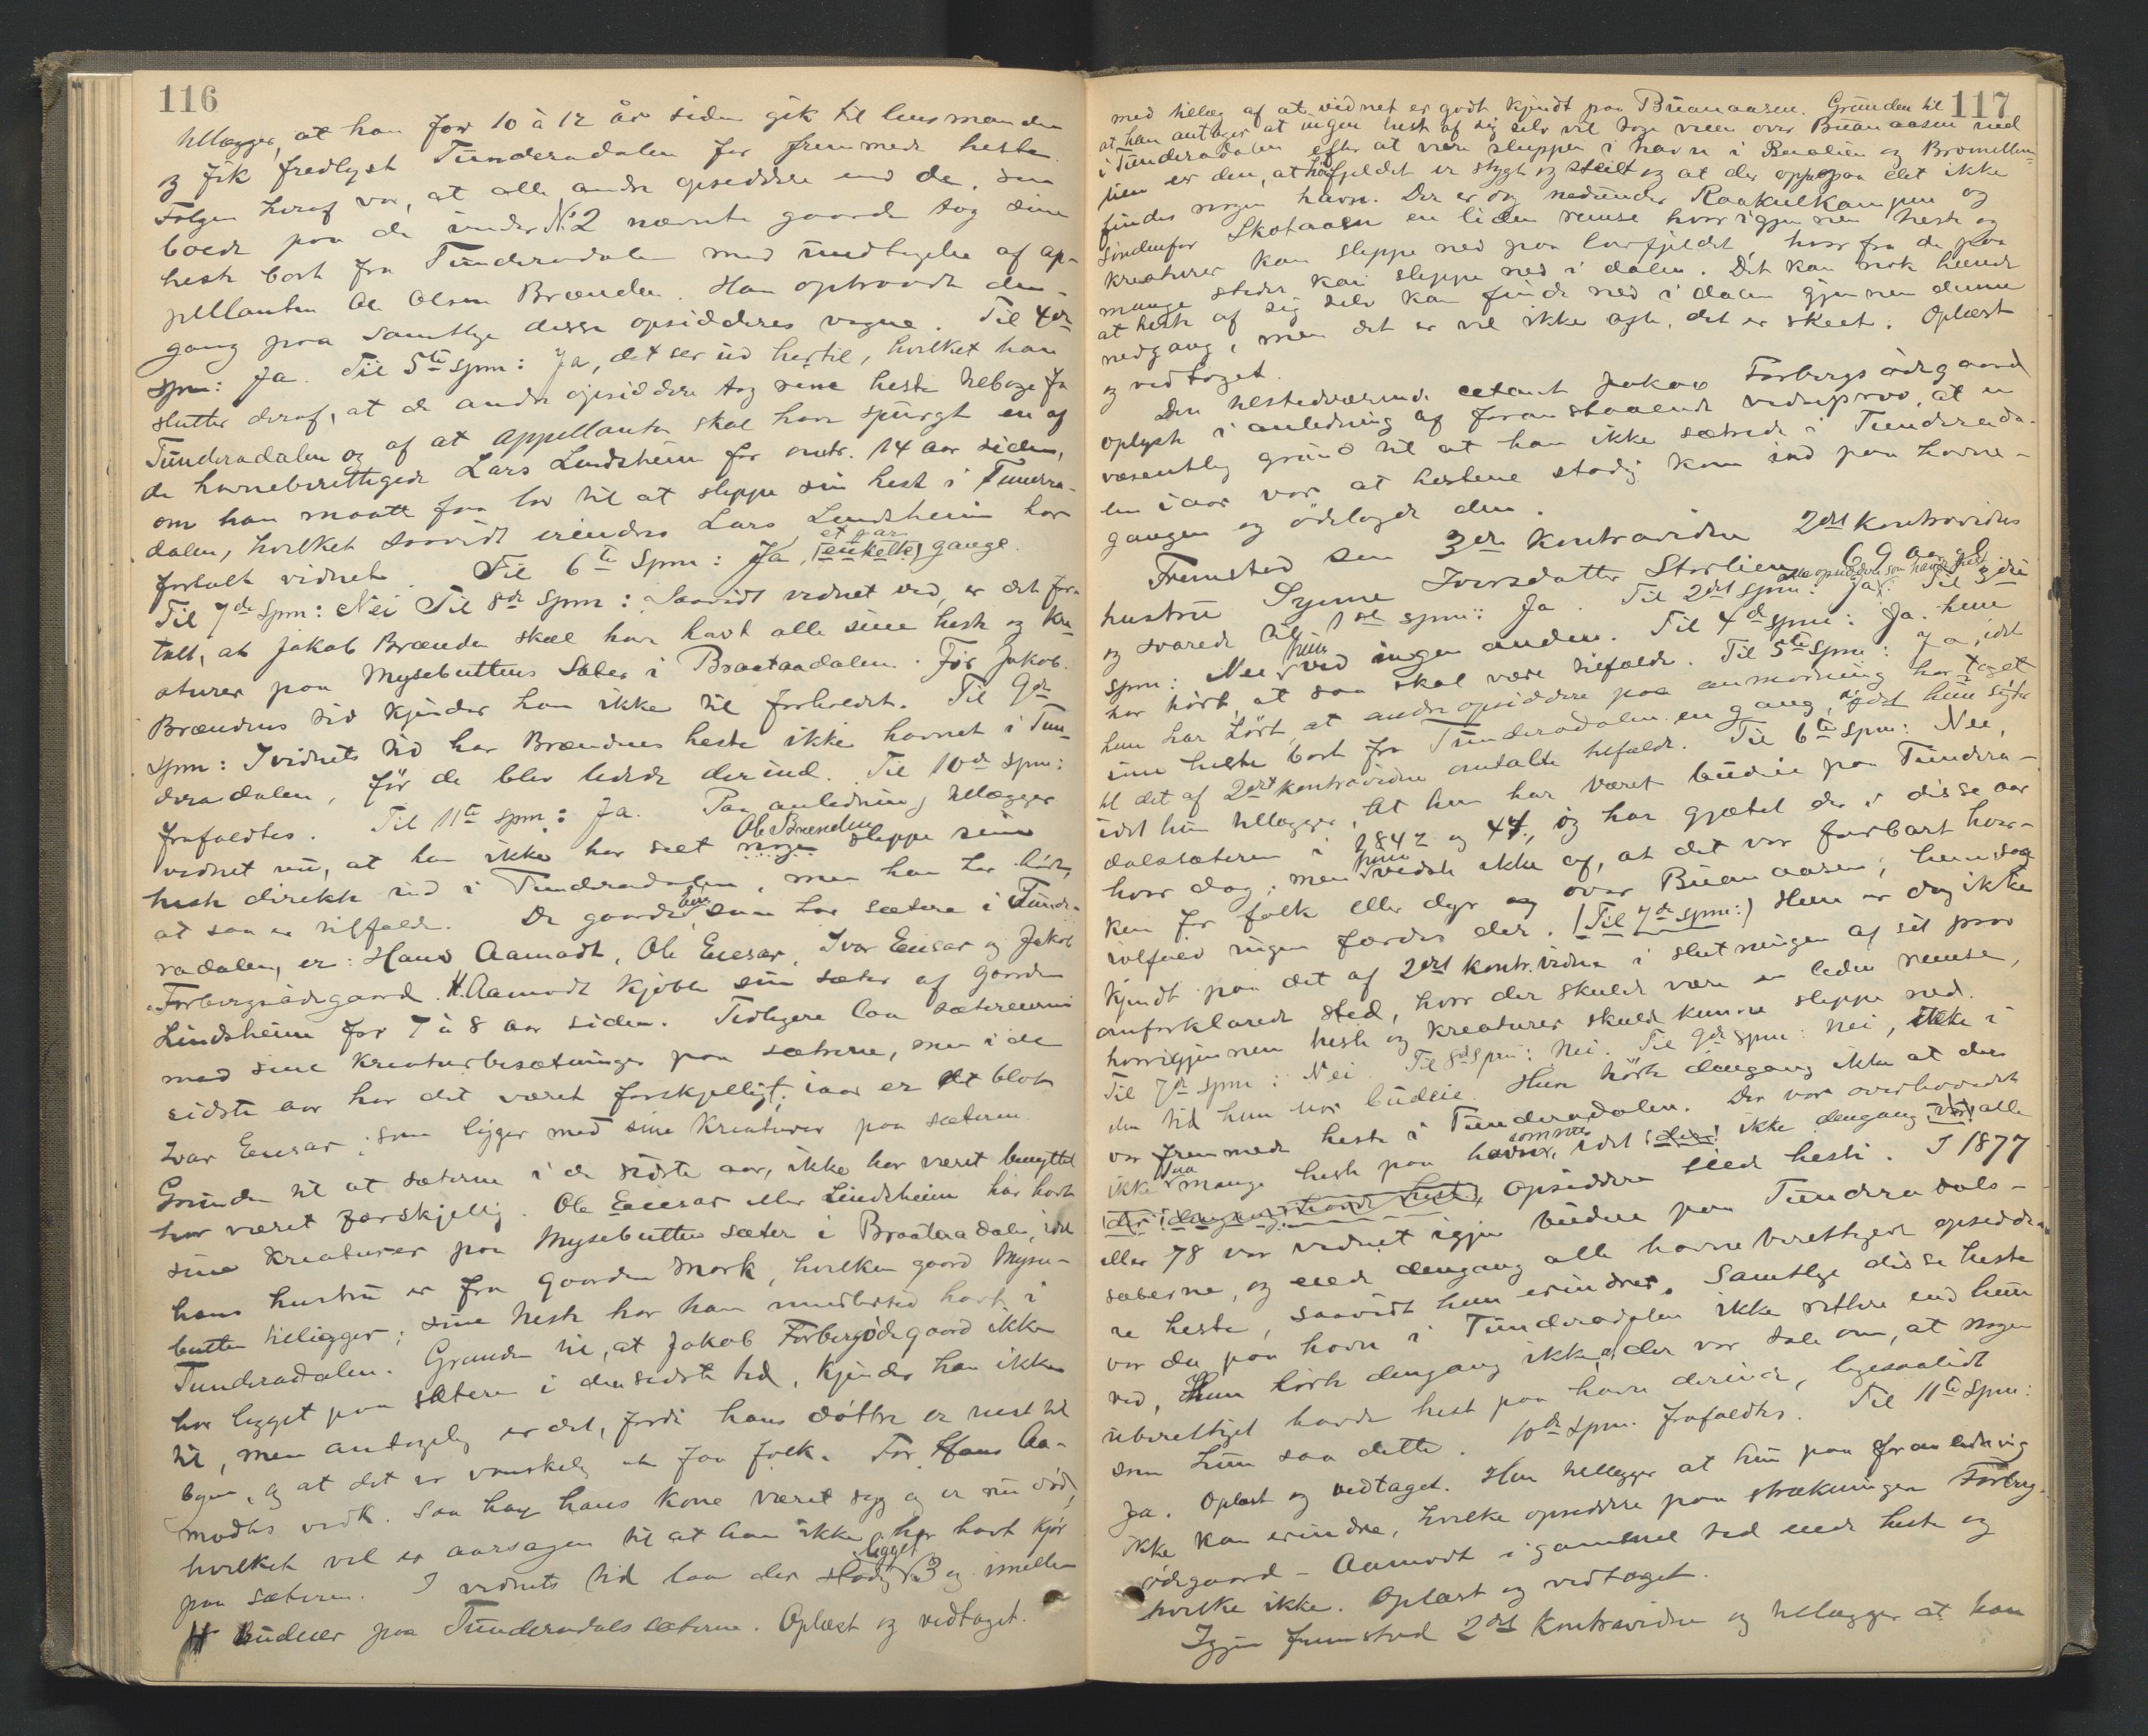 116
tillægger, at han for 10 à 12 år siden gik til lensmanden
og fik fredlyst Tunderadalen for fremmede heste.
Følgen heraf var, at alle andre opsiddere end de, som
boede paa de under No 2 nævnte gaarde tog sine
heste bort fra Tunderadalen med undtagelse af ap-
pellanten Ole Olsen Brænden. Han optraadte den-
gang paa samtlige disse opsidderes vegne. Til 4de
spm: Ja. Til 5te spm: Ja, det ser ud hertil, hvilket han
slutter deraf, at de andre opsiddere tog sine heste tilbage fra
Tunderadalen og af at appellanten skal have spurgt en af
de havneberettigede Lars Lindsheim for omtr. 14 aar siden,
om han maatte faa lov til at sleppe sin hest i Tundra-
dalen, hvilket saavidt erindres Lars Lindsheim har
fortalt vidnet. Til 6te Spm: Ja, (enkelte) et par gange.
Til 7de Spm: Nei Til 8de Spm: Saavidt vidnet ved, er det for-
talt, at Jakob Brænden skal have havt alle sine heste og kre-
aturer paa Mysebuttens Sæter i Braataadalen. Før Jakob
Brændens tid kjender han ikke til forholdet. Til 9de
Spm: I vidnets tid har Brændens heste ikke havnet i Tun-
deradalen, før de blev ledede derind. Til 10de spm:
frafaldtes. Til 11te spm: Ja. Paa anledning tillægger
vidnet nu, at han ikke har seet nogen Ole Brænden sleppe sine
heste direkte ind i Tunderadalen, men han har hørt,
at saa er tilfælde. De gaarde, som har sætere i Tunde-
radalen, er: Hans Aamodt, Ole Enesar, Ivar Enesar og Jakob
Forbergsødegaard. H. Aamodt kjøbte sin sæter af gaarden
Lindsheim for 7 à 8 aar siden. Tidligere laa sætereierne
med sine kreaturbesætninger paa sætrene, men i de
sidste aar har det været forskjelligt; iaar er det blot
Ivar Enesar, som ligger med sine kreaturer paa sæteren.
Grunden til at sæterne i de sidste aar, ikke har været benyttet
har været forskjellig. Ole Enesar eller Lindsheim har havt
sine kreaturer paa Mysebuttens sæter i Braataadalen, idet
hans hustru er fra gaarden Mork, hvilken gaard Myse-
butten tilligger; sine heste har han imidlertid havt i
Tunderadalen. Grunden til, at Jakob Forbergsødegaard ikke
har ligget paa sæteren i den sidste tid, kjender han ikke
til, men antagelig er det, fordi hans døttre er reist til
byen, og at det er vanskelig at faa folk. For Hans Aa-
modts vedk. saa har hans kone været syg og er nu død,
hvilket vel er aarsagen til at han ikke har havt kjør
paa sæteren. I vidnets tid laa der stadig ligget 3 og imellem
4 budeier paa Tunderadals sæterne. Oplæst og vedtaget.
117
med tillæg af at vidnet er godt kjendt paa Buanaasen. Grunden til
at han antager at ingen hest af sig selv vil søge veien over Buanaasen ned
i Tunderadalen efter at være sluppen i havn i Braalien og Bromillem-
lien er den, at høifjeldet er stygt og steilt og at der oppe paa det ikke
findes nogen havn. Der er og nedunder Raakulkampen og
søndenfor Skotaaen en liden remse hvorigjennem heste og
kreaturer kan sleppe ned paa lavfjeldet, hvorfra de paa
mange steder kan sleppe ned i dalen. Det kan nok hænde
at heste af sig selv kan finde ned i dalen gjennem denne
nedgang, men det er vel ikke ofte, det er skeet. Oplæst
og vedtaget.
Den tilstedeværende citant Jakob Forbergsødegaard
oplyste i anledning af foranstaaende vidneprov, at en
væsentlig grund til at han ikke sætrede i Tunderada-
len iaar var at hestene stadig kom ind paa havne-
gangen og ødelagde den.
Fremsted som 3die kontravidne 2det kontravidnes
hustru Synne Iversdatter Storlien 69 aar gl
og svarede til 1ste spm: Ja. Til 2det spm: Ja, alle opsiddere som havde hest. Til 3die
spm: Nei hun ved ingen anden. Til 4de spm: Ja. hun
har hørt, at saa skal være tilfælde. Til 5te Spm: Ja, idet
hun har hørt, at andre opsiddere paa anmodning har taget
sine heste bort fra Tunderadalen en gang, idet hun sigter
til det af 2det kontravidne omtalte tilfælde. Til 6te Spm: Nei,
idet hun tillægger, at hun har været budeie paa Tundera-
dalsæteren i 1842 og 44, og har gjætet der i disse aar
hver dag; men hun vidste ikke af, at det var farbart hver-
ken for folk eller dyr over Buanaasen; hun saa
iolfald ingen færdes der. (Til 7de spm:) Hun er dog ikke
kjendt paa det af 2det kontr. vidne i slutningen af sit prov
omforklarede sted, hvor der skulde være en liden remse,
hvorigjennem heste og kreaturer skulde kunne sleppe ned.
Til 7de spm: Nei. Til 8de Spm: Nei. Til 9de spm: Nei, ikke i
den tid hun var budeie. Hun hørte dengang ikke at der
var fremmede heste i Tunderadalen. Der var overhovedet
ikke saa mange heste paa havn som nu, idet (der) ikke dengang (var) alle
(der dengang havde heste) opsiddere eiede heste. I 1877
eller 78 var vidnet igjen budeie paa Tunderadals-
sæterne, og eiede dengang alle havneberettigede opsidde-
re heste, saavidt hun erindrer. Samtlige disse heste
var da paa havn i Tunderadalen ikke rettere end hun
ved, Hun hørte dengang ikke, at der var tale om, at nogen
uberettiget havde hest paa havn derinde, ligesaalidt
som hun saa dette. 10de spm. frafaldtes. Til 11te Spm:
Ja. Oplæst og vedtaget. Hun tillægger at hun paa foranledning
ikke kan erindre, hvilke opsiddere paa strækningen Forberg-
ødegaard - Aamodt i gammel tid eiede heste og
hvilke ikke. Oplæst og vedtaget.
Igjen fremstod 2det kontravidne og tillægger at han